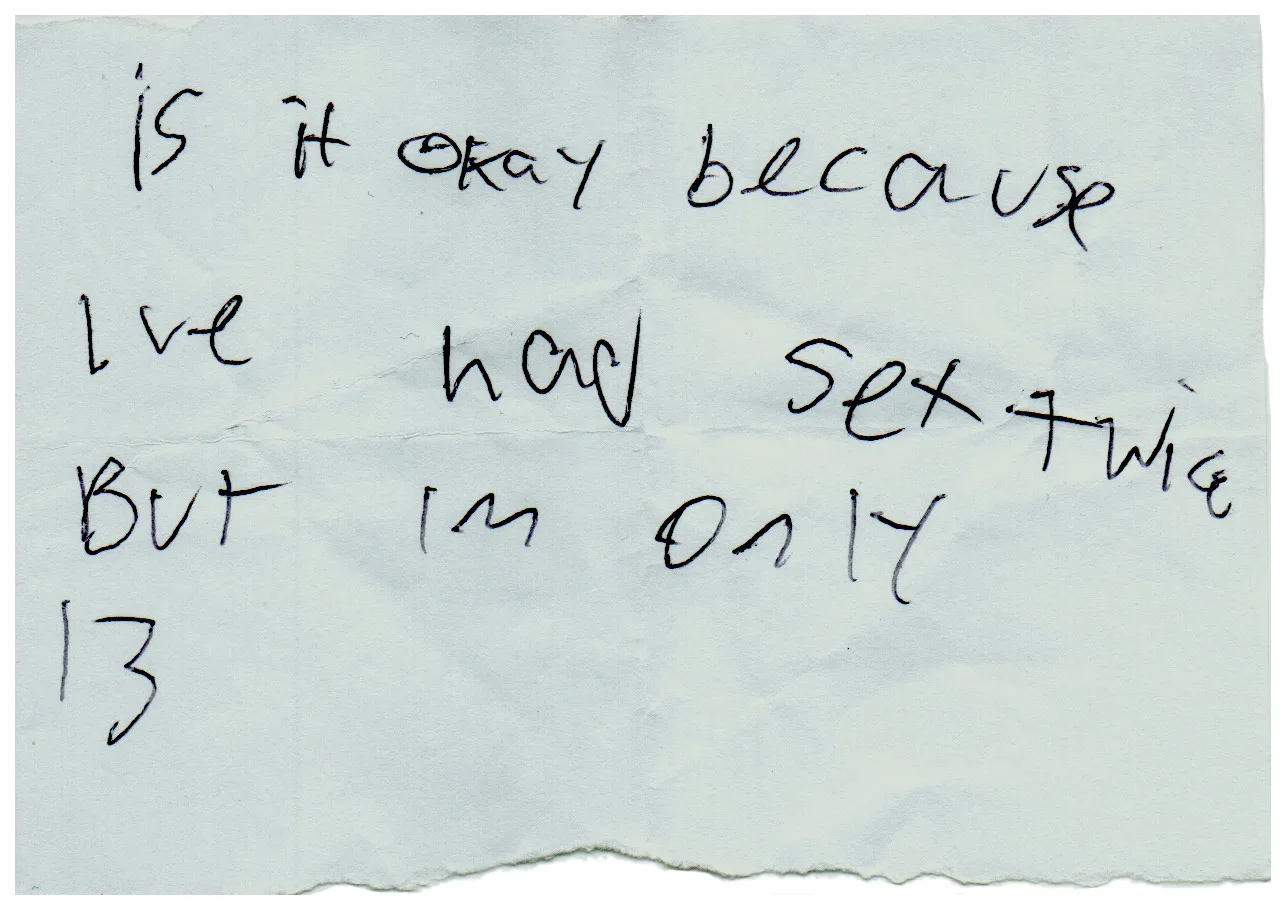 is it okay because
Ive had sex twice
But im only
13